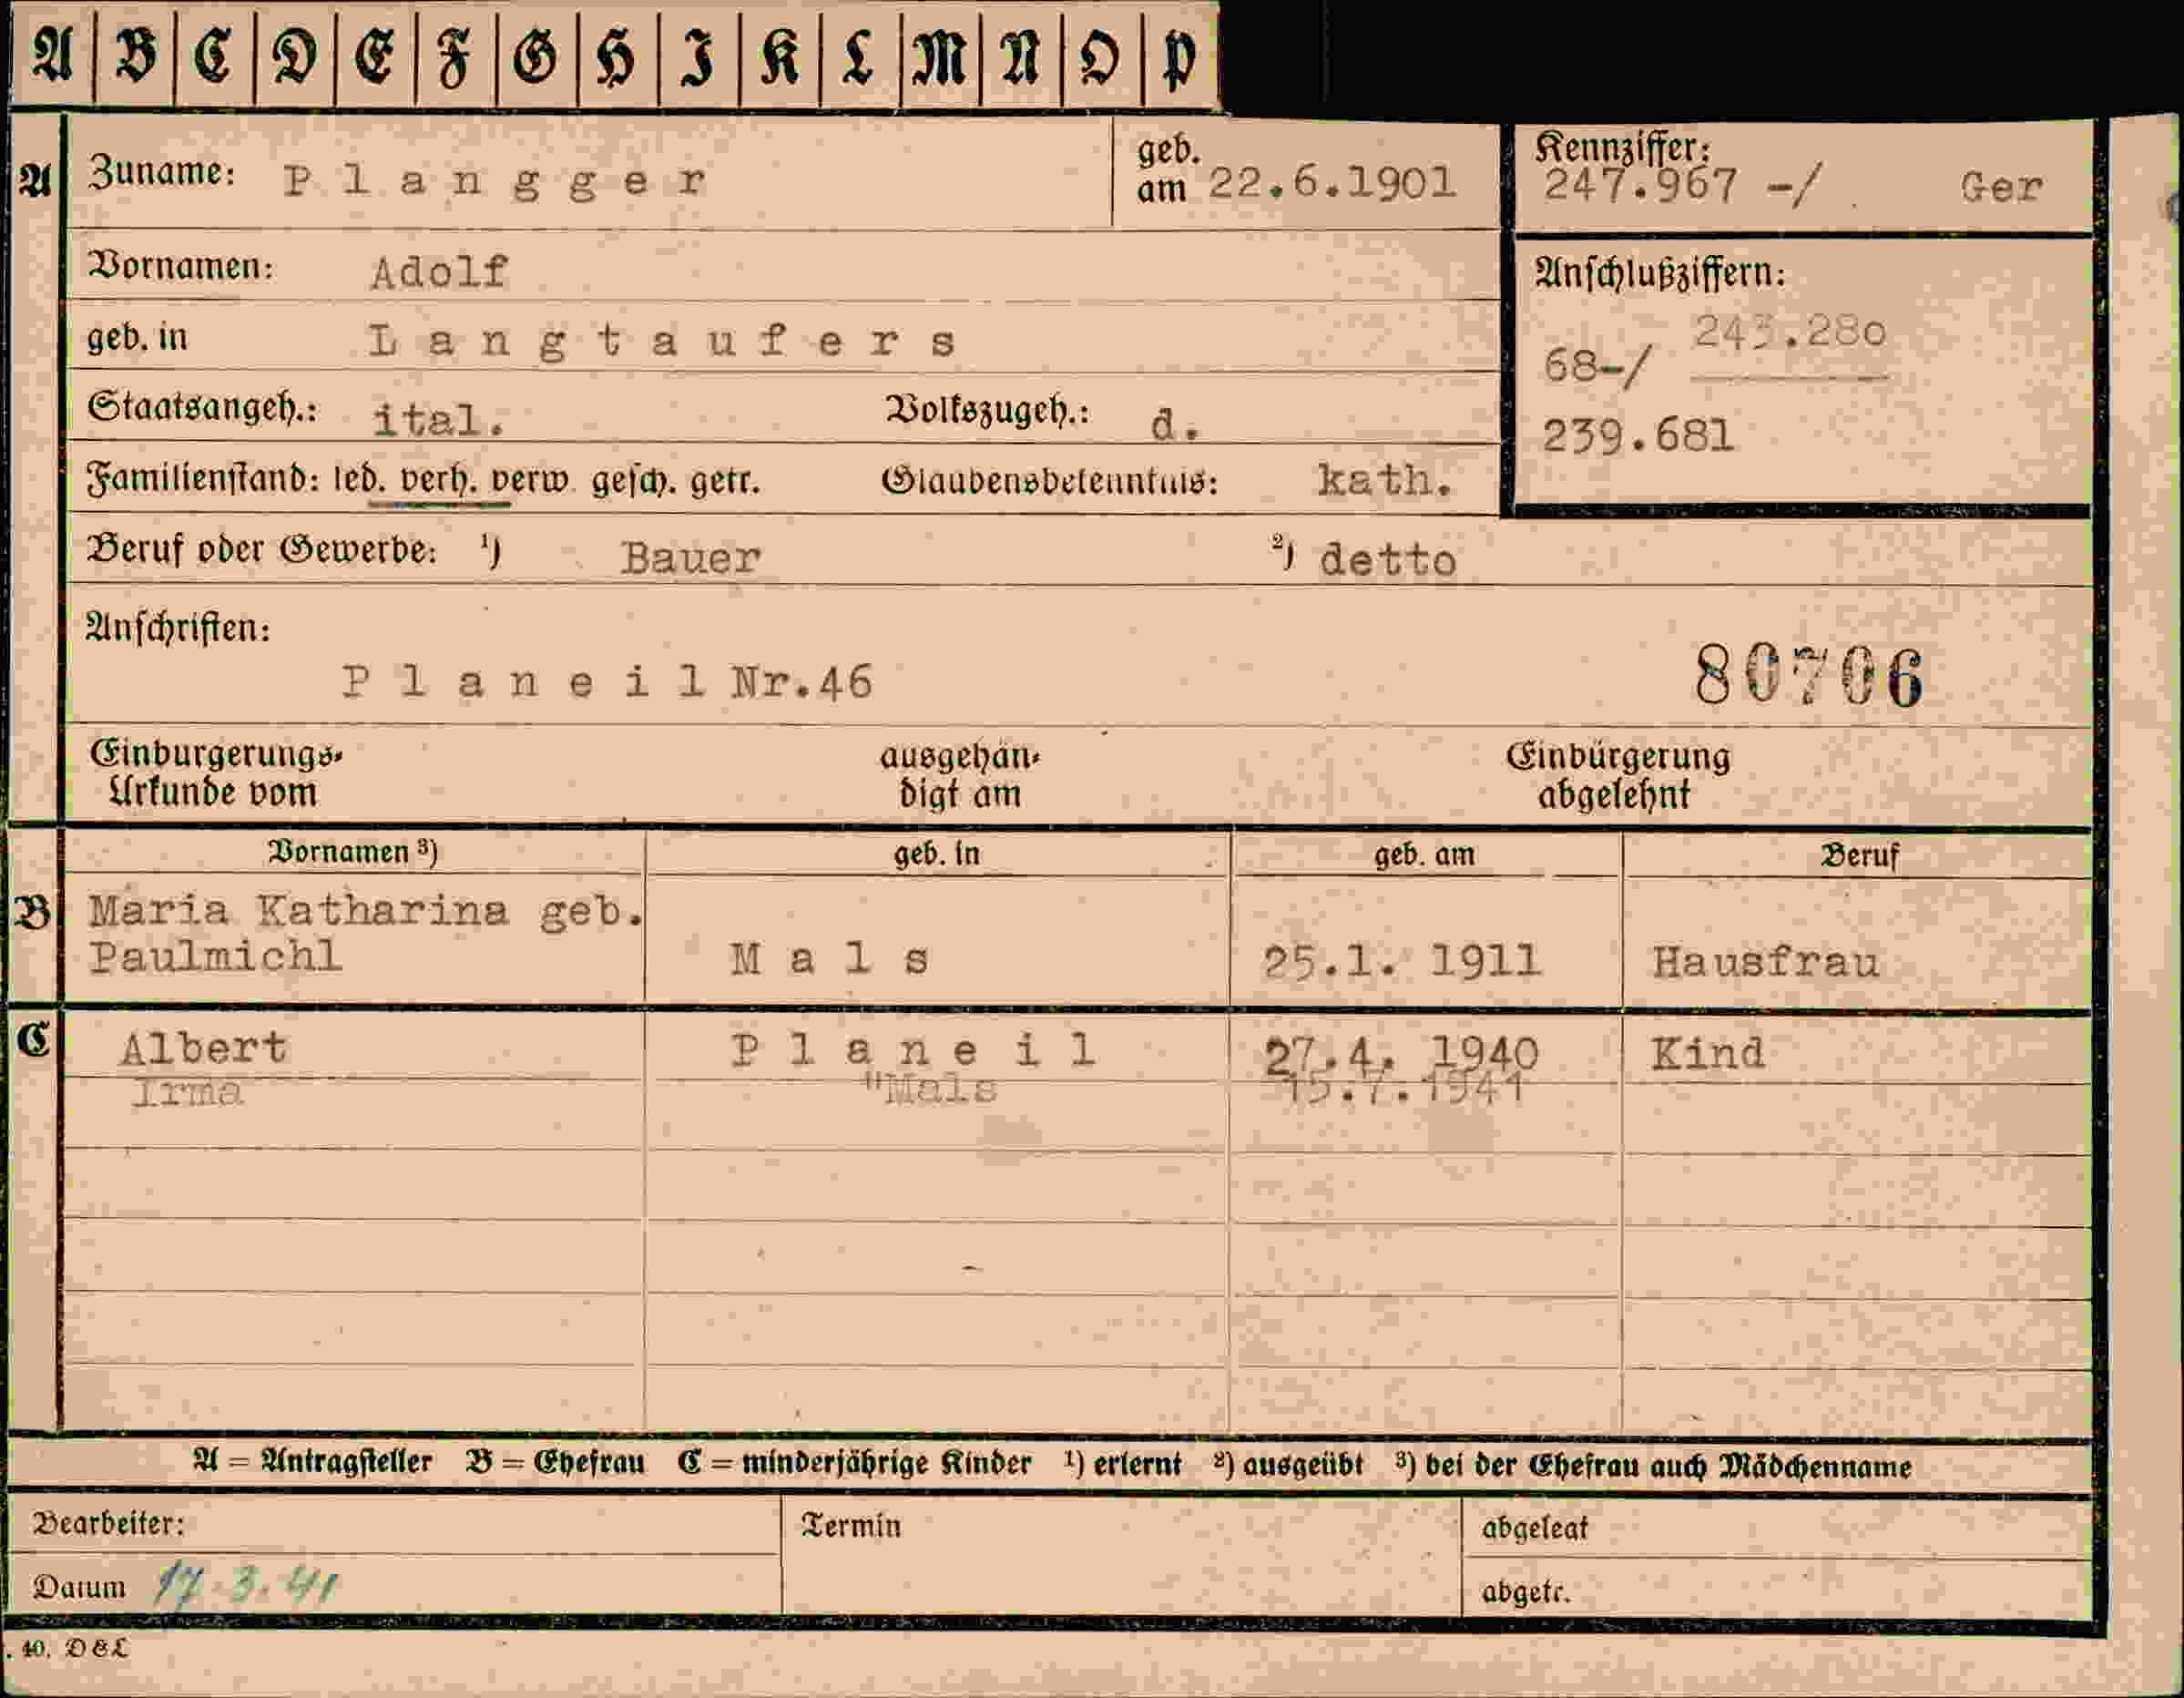 A B C D E F G H I K L M N O P
A Zuname: Plangger geb. am 22.6.1901 Kennziffer: 247.967 -/ Ger
Vornamen: Adolf Anschlußziffern:
geb. in Langtaufers 68-/ 243.280
Staatsangeh.: ital. Volkszugeh.: d. 239.681
Familienstand: led. verh. verw. gesch. getr. Glaubensbekenntnis: kath.
Beruf oder Gewerbe: ¹) Bauer ²) detto
Anschriften:
Planeil Nr.46 80706
Einbürgerungs- ausgehän- Einbürgerung
Urkunde vom digt am abgelehnt
Vornamen ³) geb. in geb. am Beruf
B Maria Katharina geb.
Paulmichl Mals 25.1. 1911 Hausfrau
C Albert Planeil 27.4. 1940 Kind
Irma "Mals 15.7.1941
A = Antragsteller B = Ehefrau C = minderjährige Kinder ¹) erlernt ²) ausgeübt ³) bei der Ehefrau auch Mädchenname
Bearbeiter: Termin abgelegt
Datum 17.3.41 abgetr.
. 40. D&L